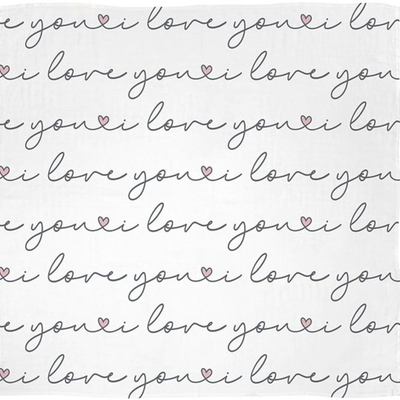 e you i love you i lov
i love you i love you
e you i love you i lov
i love you i love you
e you i love you i lov
i love you i love you
e you i love you i lov
i love you i love you